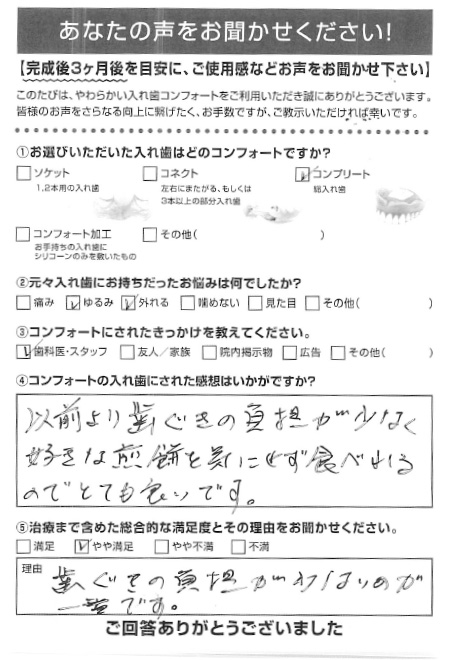 あなたの声をお聞かせください!
【完成後3ヶ月後を目安に、ご使用感などお声をお聞かせ下さい】
このたびは、やわらかい入れ歯コンフォートをご利用いただき誠にありがとうございます。
皆様のお声をさらなる向上に繋げたく、お手数ですが、ご教示いただければ幸いです。
①お選びいただいた入れ歯はどのコンフォートですか?
ソケット コネクト コンプリート
1,2本用の入れ歯 左右にまたがる、もしくは 総入れ歯
3本以上の部分入れ歯
コンフォート加工 その他( )
お手持ちの入れ歯に
シリコーンのみを敷いたもの
②元々入れ歯にお持ちだったお悩みは何でしたか?
痛み ゆるみ 外れる 噛めない 見た目 その他( )
③コンフォートにされたきっかけを教えてください。
歯科医・スタッフ 友人/家族 院内掲示物 広告 その他( )
④コンフォートの入れ歯にされた感想はいかがですか?
以前より歯ぐきの負担が少なく
好きな煎餅を気にせず食べれる
のでとても良いです。
⑤治療まで含めた総合的な満足度とその理由をお聞かせください。
満足 やや満足 やや不満 不満
理由
歯ぐきの負担が のが
一番です。
ご回答ありがとうございました